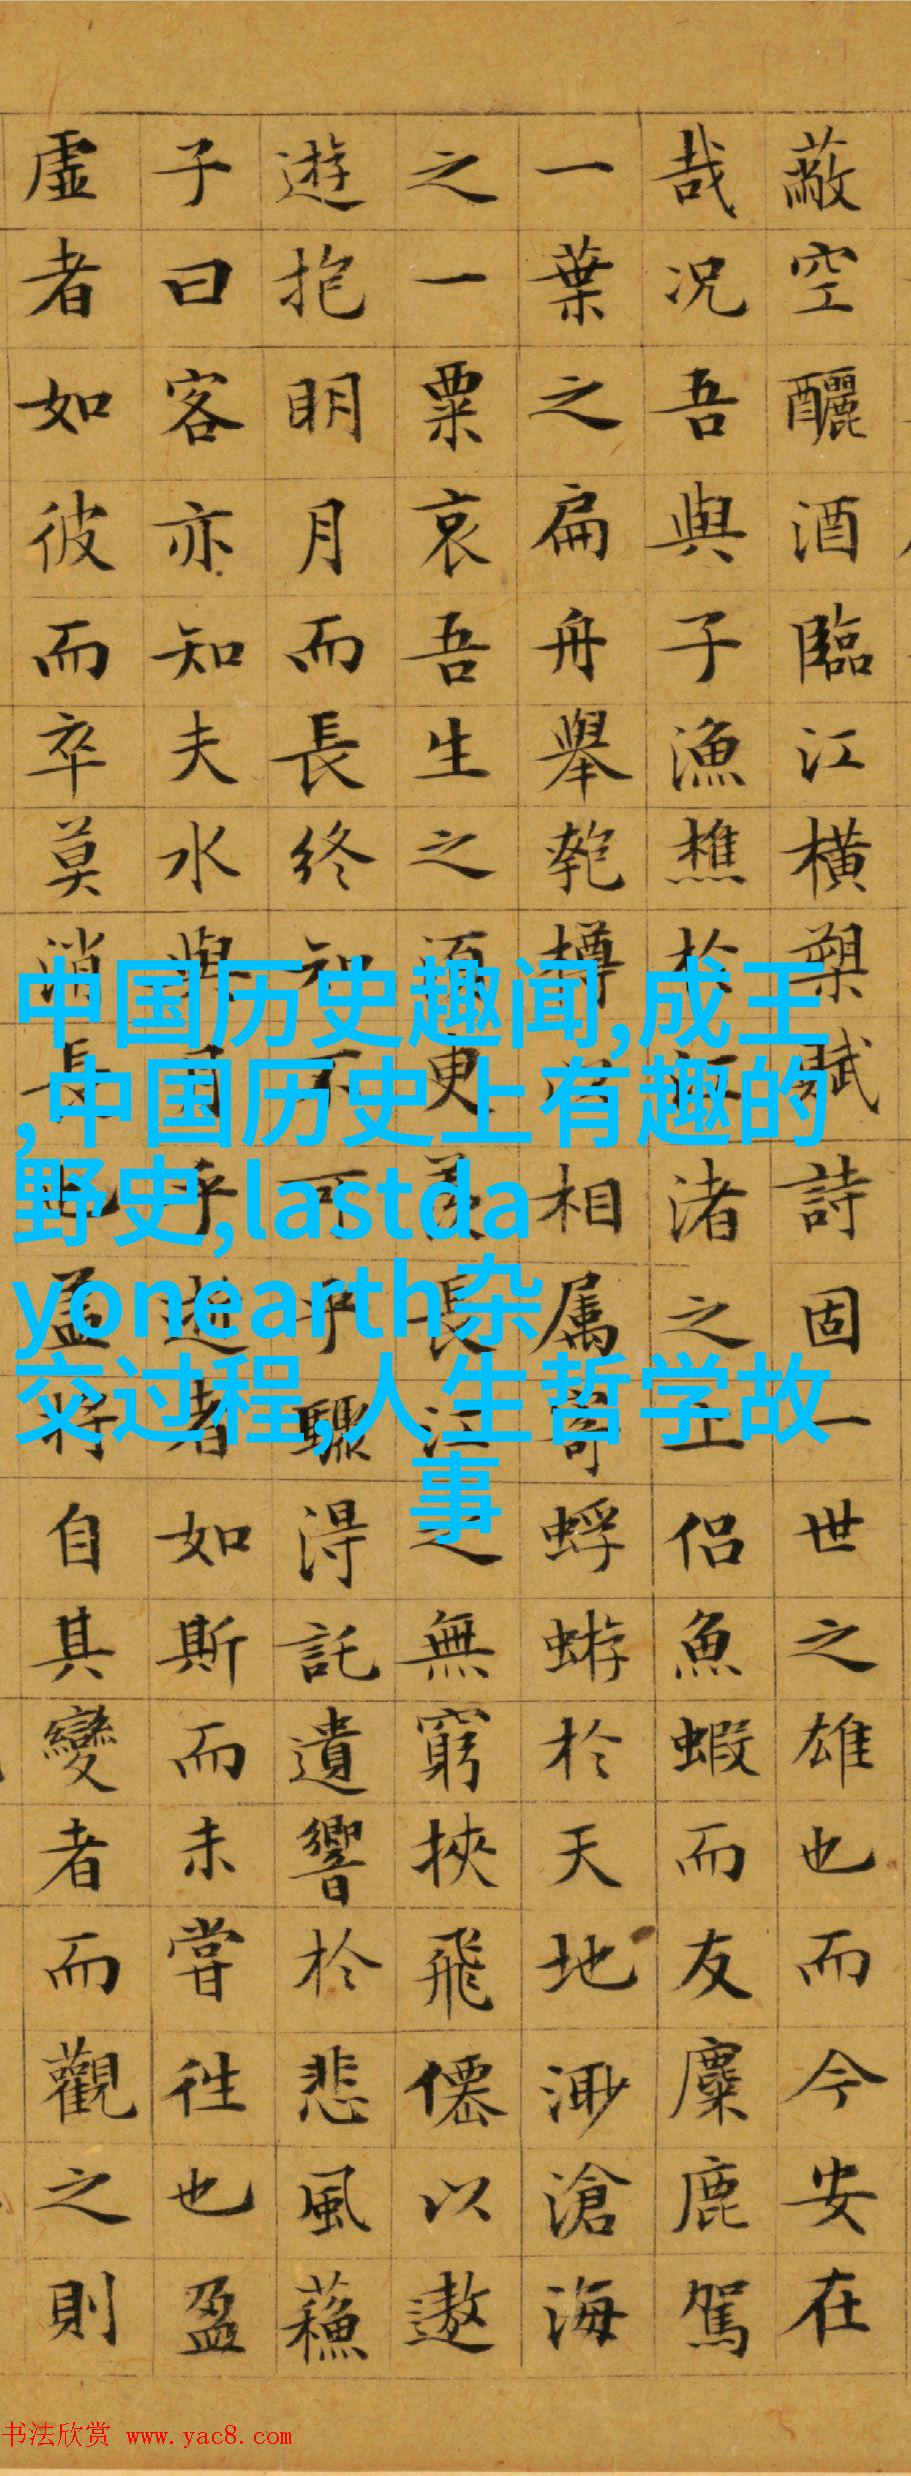 蔽空釃酒臨江橫槊賦詩固一世之雄也而今安在
哉况吾與子漁樵於江渚之上侶魚蝦而友麋鹿駕
一葉之扁舟舉匏樽以相属寄蜉蝣於天地渺滄海
之一粟哀吾生之須更羡長江之無窮挾飛僊以遨
遊抱明月而長終知不可乎驟得託遺響於悲風蘓
子曰客亦知夫水與月乎逝者如斯而未嘗往也盈
虛者如彼而卒莫消長也盖将自其變者而觀之則
中国历史趣闻,成王
,中国历史上有趣的
野史,lastda
yonearth杂
交过程,人生哲学故
事
书法欣赏 www.yac8.com